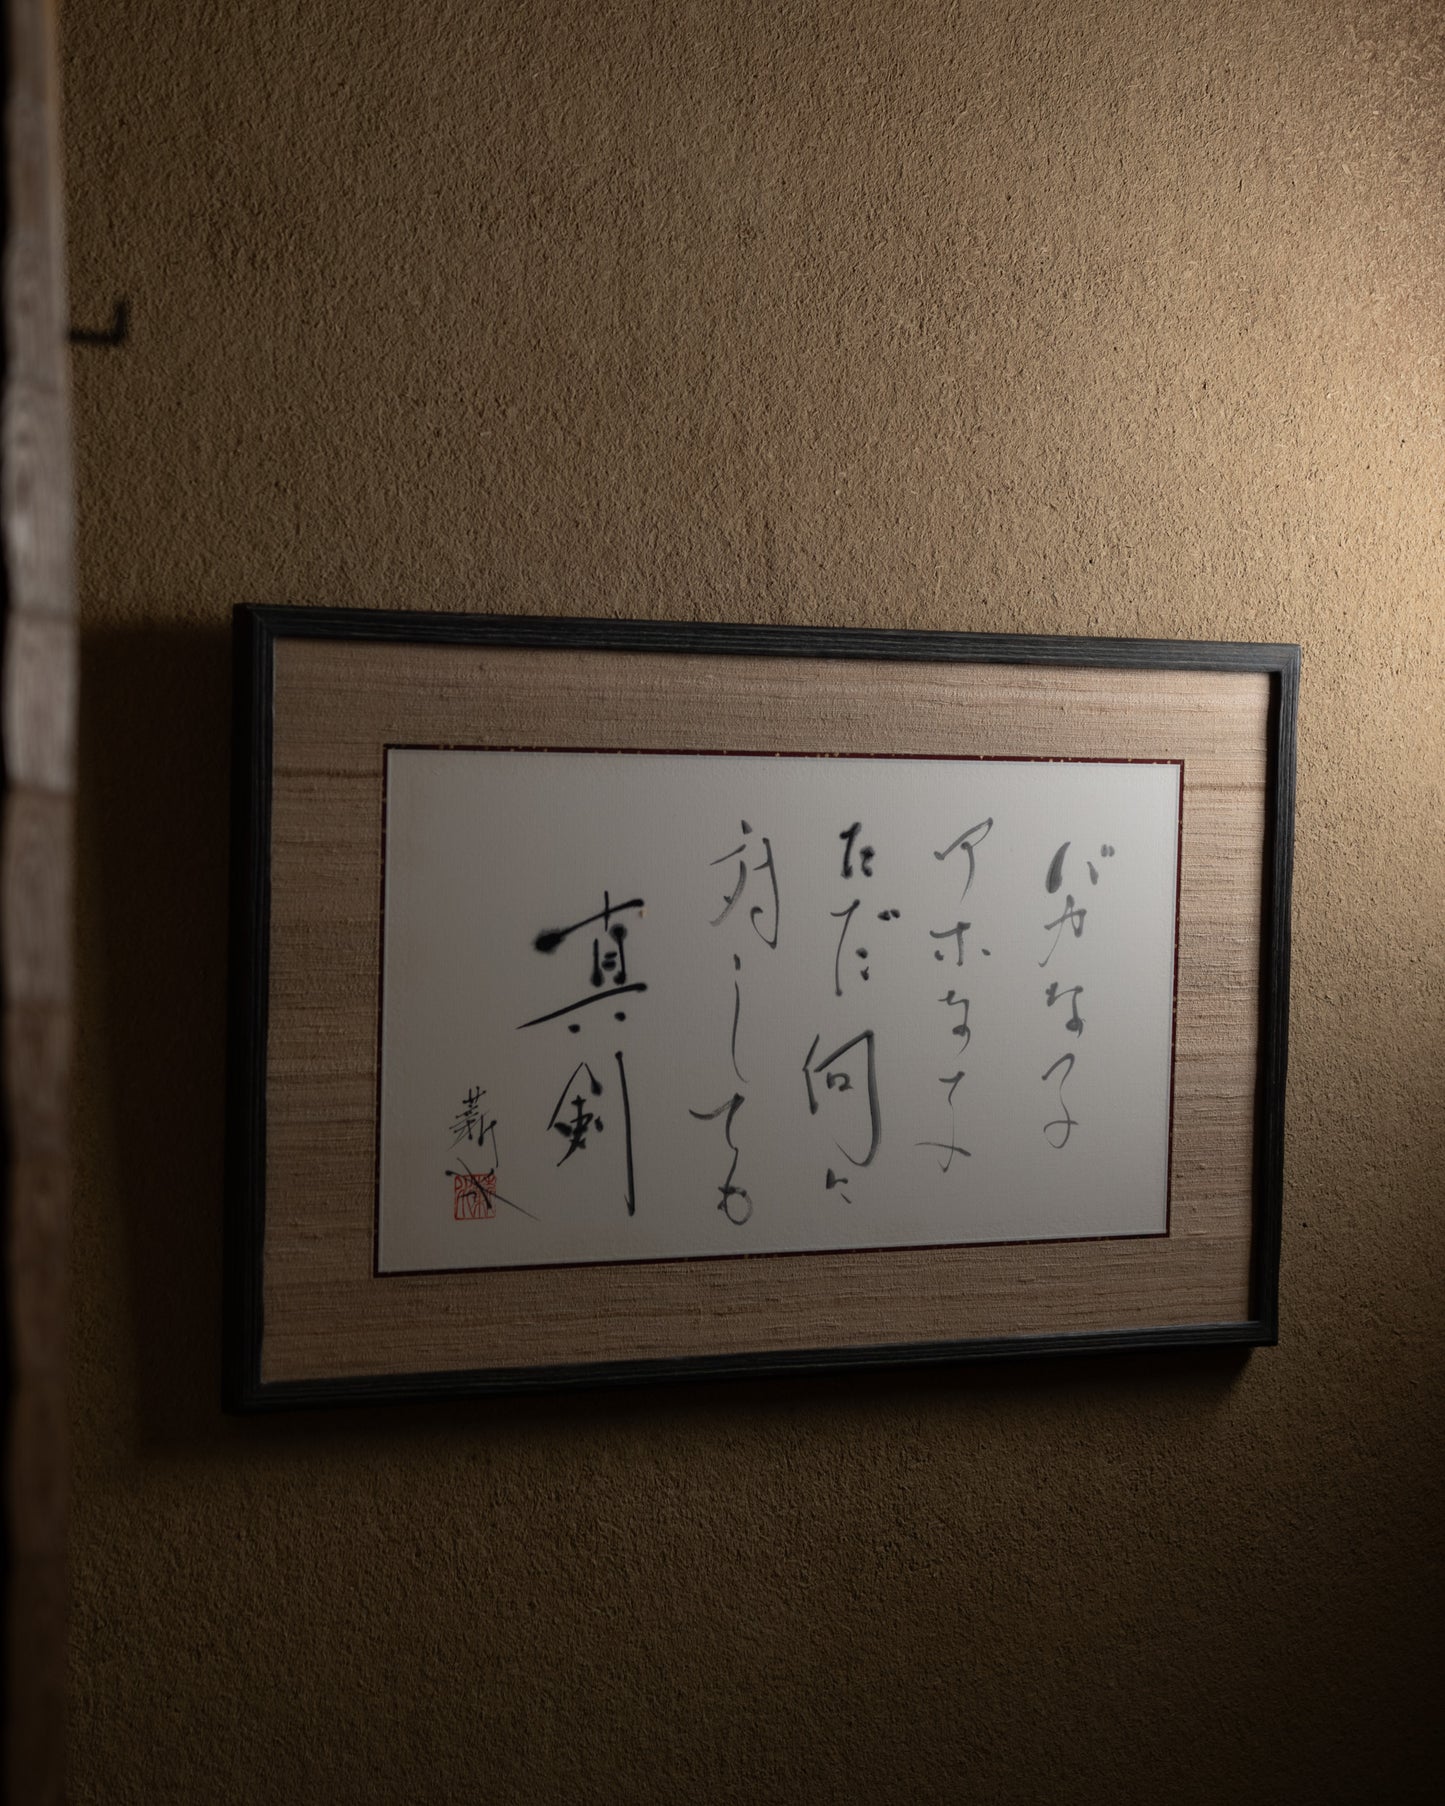 バカな子
アホな子
ただ何に
対しても
真剣